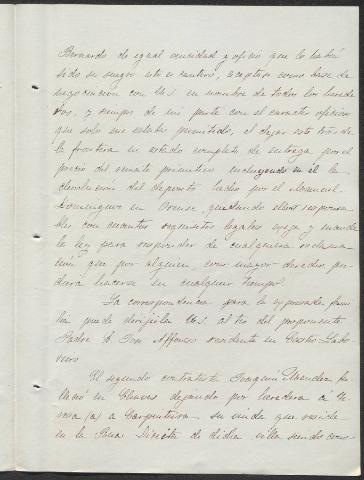 Bernardo de igual vecindad y oficio que lo habia
sido su suegro esto es cantero, aceptase como base de
negociación con Us. en nombre de todos los herede
ros, y siempre de mi parte con el caracter oficioso
que solo me estaba permitido, el dejar este trozo de
la frontera en estado completo de entrega por el
precio del remate primitivo incluyendo en el la
devolucion del deposito hecho por el Manuel
Dominguez en Orense, quedando ellos responsa
bles con cuantos requisitos legales exija y mande
la ley para responder de cualquiera reclama
cion que por alguien, con mayor derecho, pu
diera hacerse en cualquier tiempo.
La correspondencia para la expresada fami
lia puede dirijirla Us. al tio del proponente
Padre Don Affonso residente en Castro Labo
reiro
El segundo contratista Joaquin Mendez, fa
lleció en Chaves dejando por heredera á
rosa (a) a Carpinteira, su viuda que reside
en la Rua Direita de dicha villa siendo como